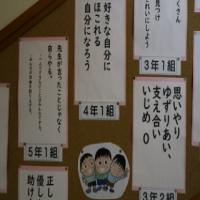 くさん
見つけ
きれいにしよう
3年1組
好きな自分に
ほこれる
自分になろう
4年1組
先生が言ったことじゃなく
自らやる。
5年1組
思いやり
ゆずりあい、
支え合い
いじめ0
3年2組
正し
優し
助け